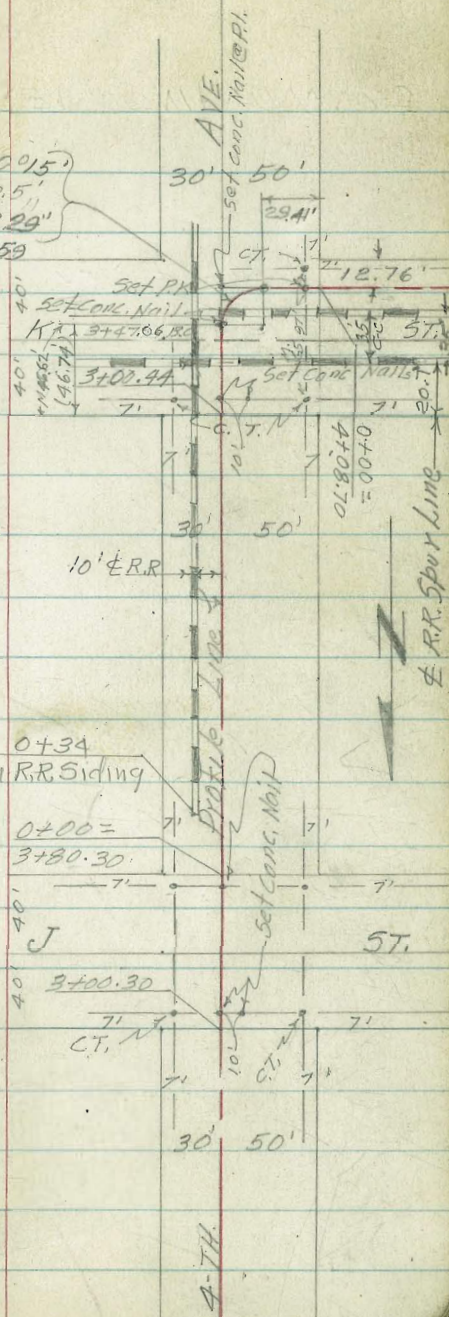 AVE.
Set Conc. Nail @ P.I.
0°15'
.5'
29"
59
30' 50'
29.41'
C.T. 7'
7' 12.76'
Set P.K.
Set Conc. Nail
40'
K 3+47.06 B.C.
ST.
35'
C-C
40'
(46.74)
3+00.44
Set Conc Nails
20.7
7' 7'
C.T.
10'
7' 7'
0+00 =
4+08.70
30' 50'
10' ℄ R.R
℄ R.R. Spur Line
Profile Line
0+34
R.R Siding
0+00 =
3+80.30
7' 7'
Set Conc. Nail
7' 7'
40'
J ST.
40'
3+00.30
7' 7'
C.T.
10'
C.T.
7' 7'
30' 50'
4-TH.